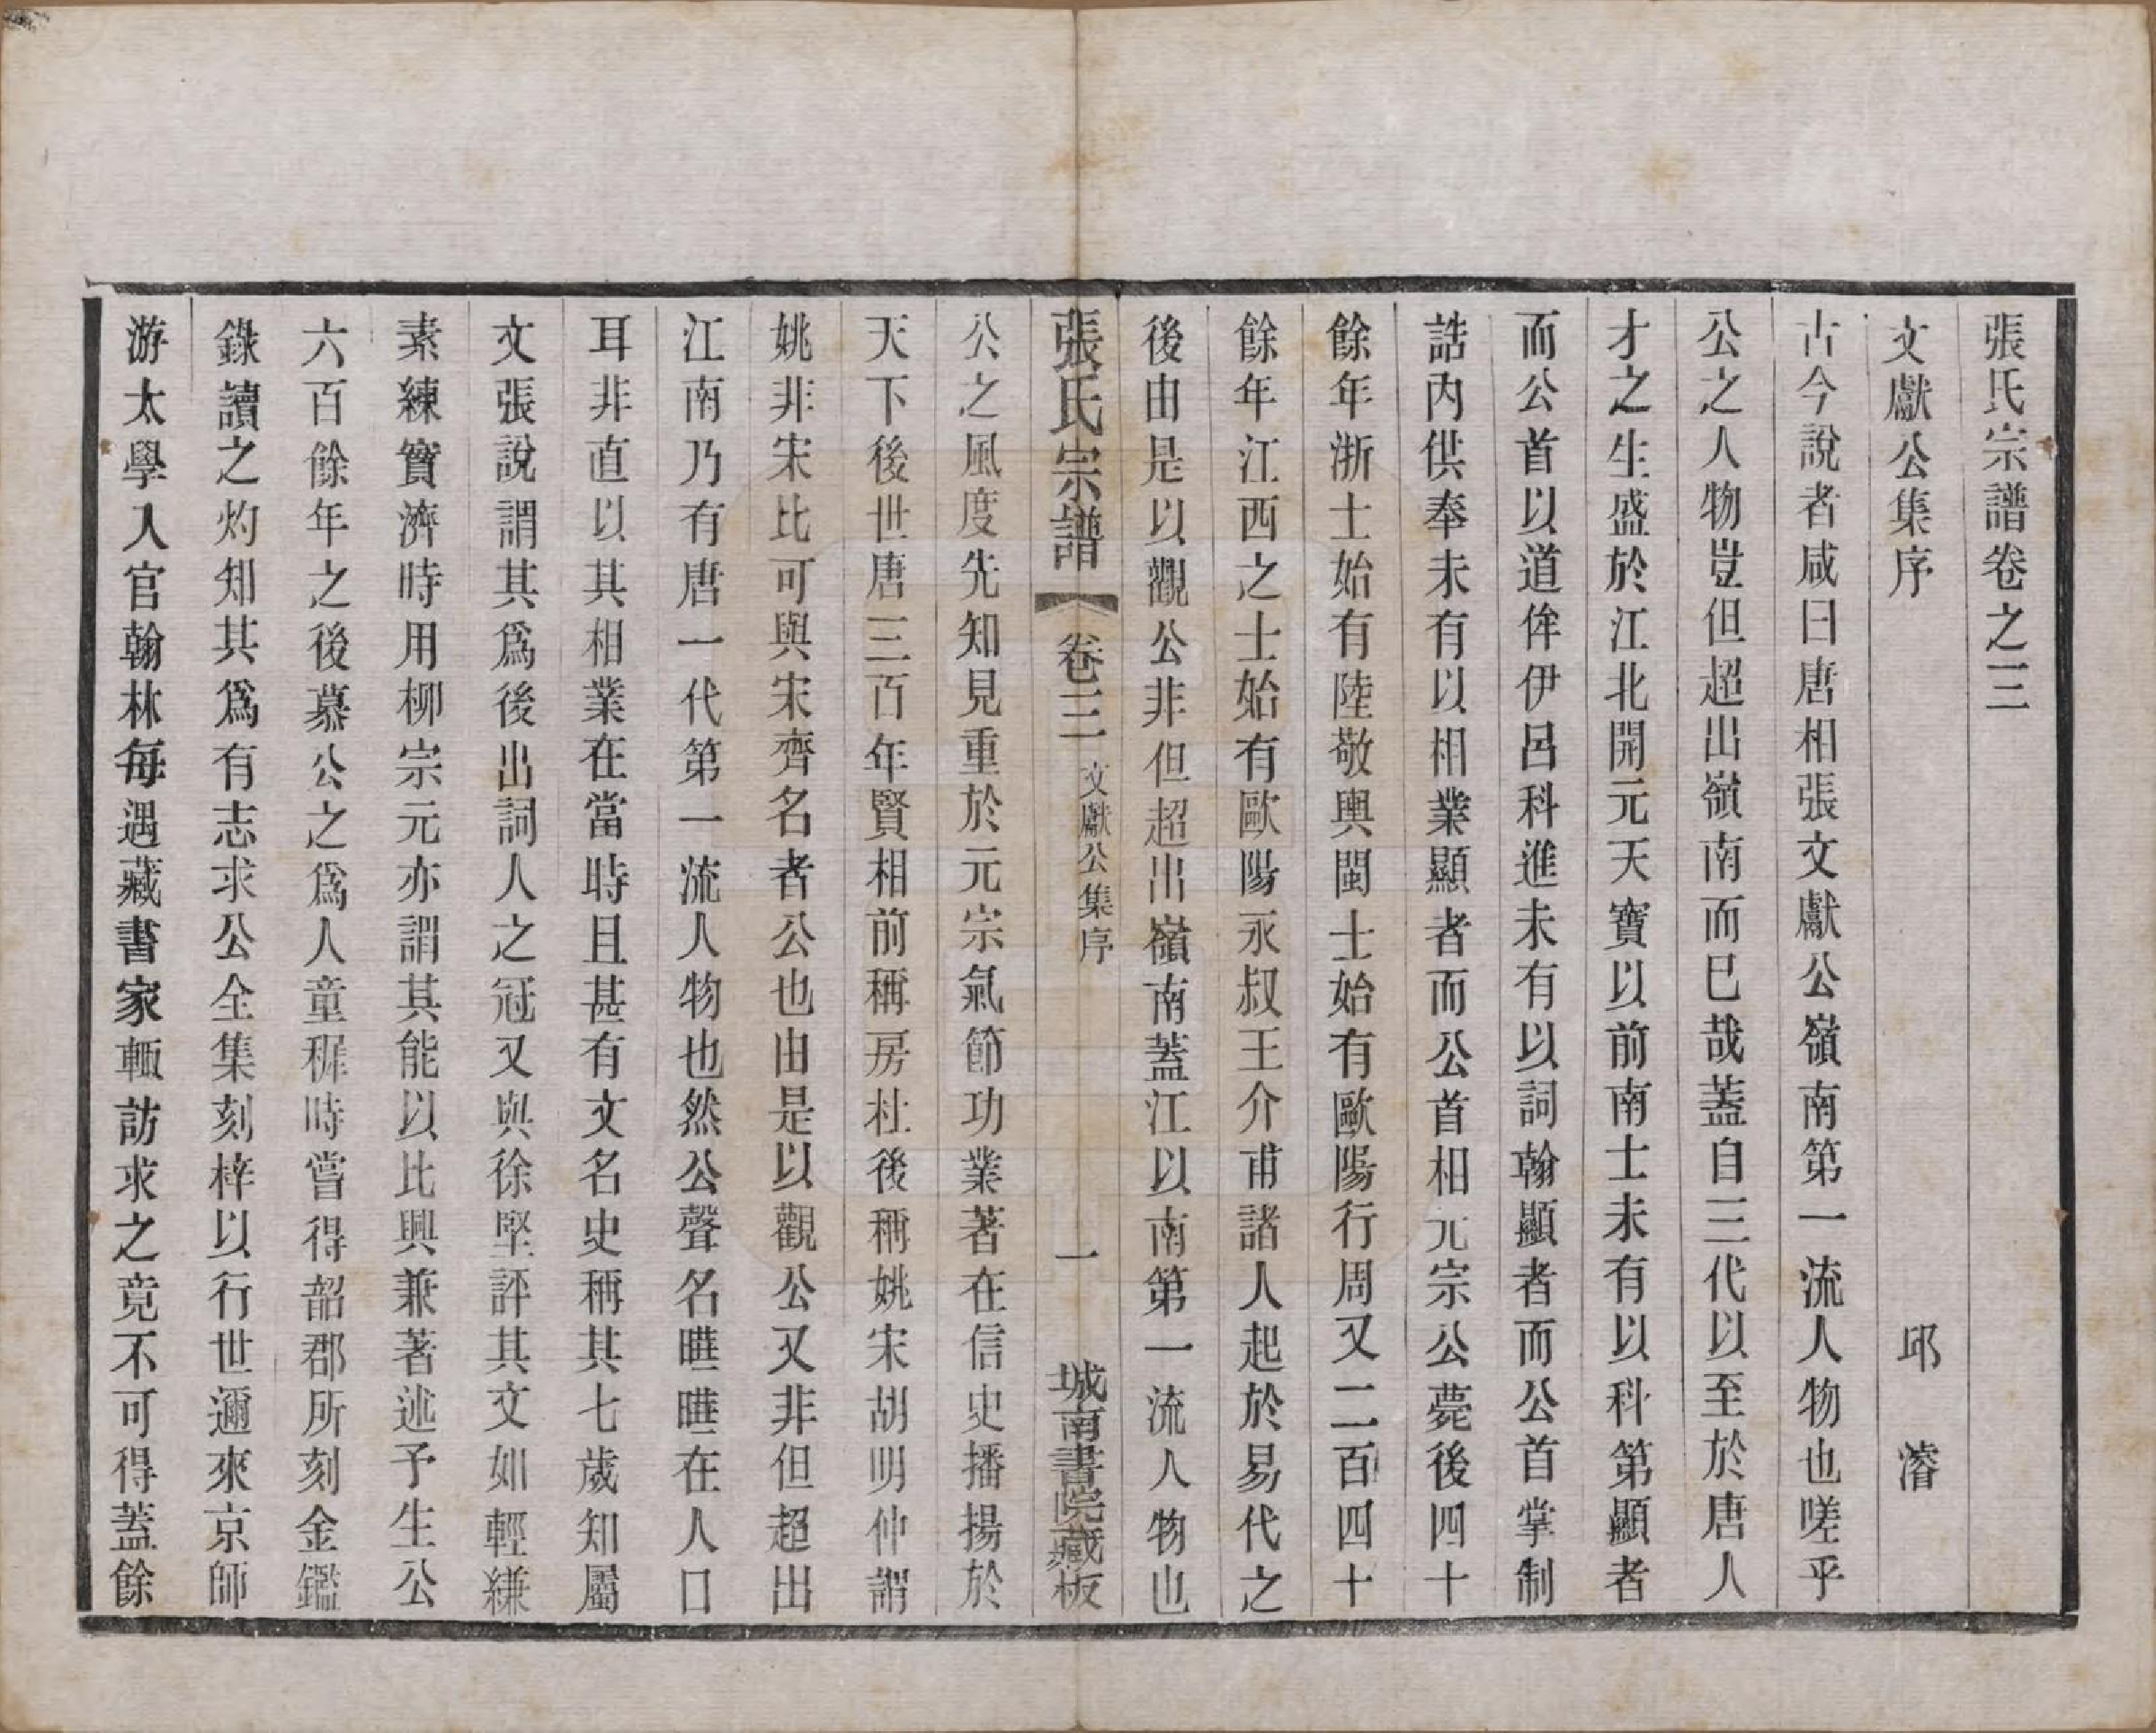 張氏宗譜卷之三
文獻公集序　邱濬
古今說者咸曰唐相張文獻公嶺南第一流人物也嗟乎
公之人物豈但超出嶺南而已哉蓋自三代以至於唐人
才之生盛於江北開元天寶以前南士未有以科第顯者
而公首以道侔伊呂科進未有以詞翰顯者而公首掌制
誥內供奉未有以相業顯者而公首相元宗公薨後四十
餘年浙士始有陸敬輿閩士始有歐陽行周又二百四十
餘年江西之士始有歐陽永叔王介甫諸人起於易代之
後由是以觀公非但超出嶺南蓋江以南第一流人物也
張氏宗譜　卷三　文獻公集序　一　城南書院藏板
公之風度先知見重於元宗氣節功業著在信史播揚於
天下後世唐三百年賢相前稱房杜後稱姚宋胡明仲謂
姚非宋比可與宋齊名者公也由是以觀公又非但超出
江南乃有唐一代第一流人物也然公聲名曄曄在人口
耳非直以其相業在當時且甚有文名史稱其七歲知屬
文張說謂其爲後出詞人之冠又與徐堅評其文如輕縑
素練實濟時用柳宗元亦謂其能以比興兼著述予生公
六百餘年之後慕公之爲人童穉時嘗得韶郡所刻金鑑
錄讀之灼知其爲有志求公全集刻梓以行世邇來京師
游太學入官翰林每遇藏書家輒訪求之竟不可得蓋餘